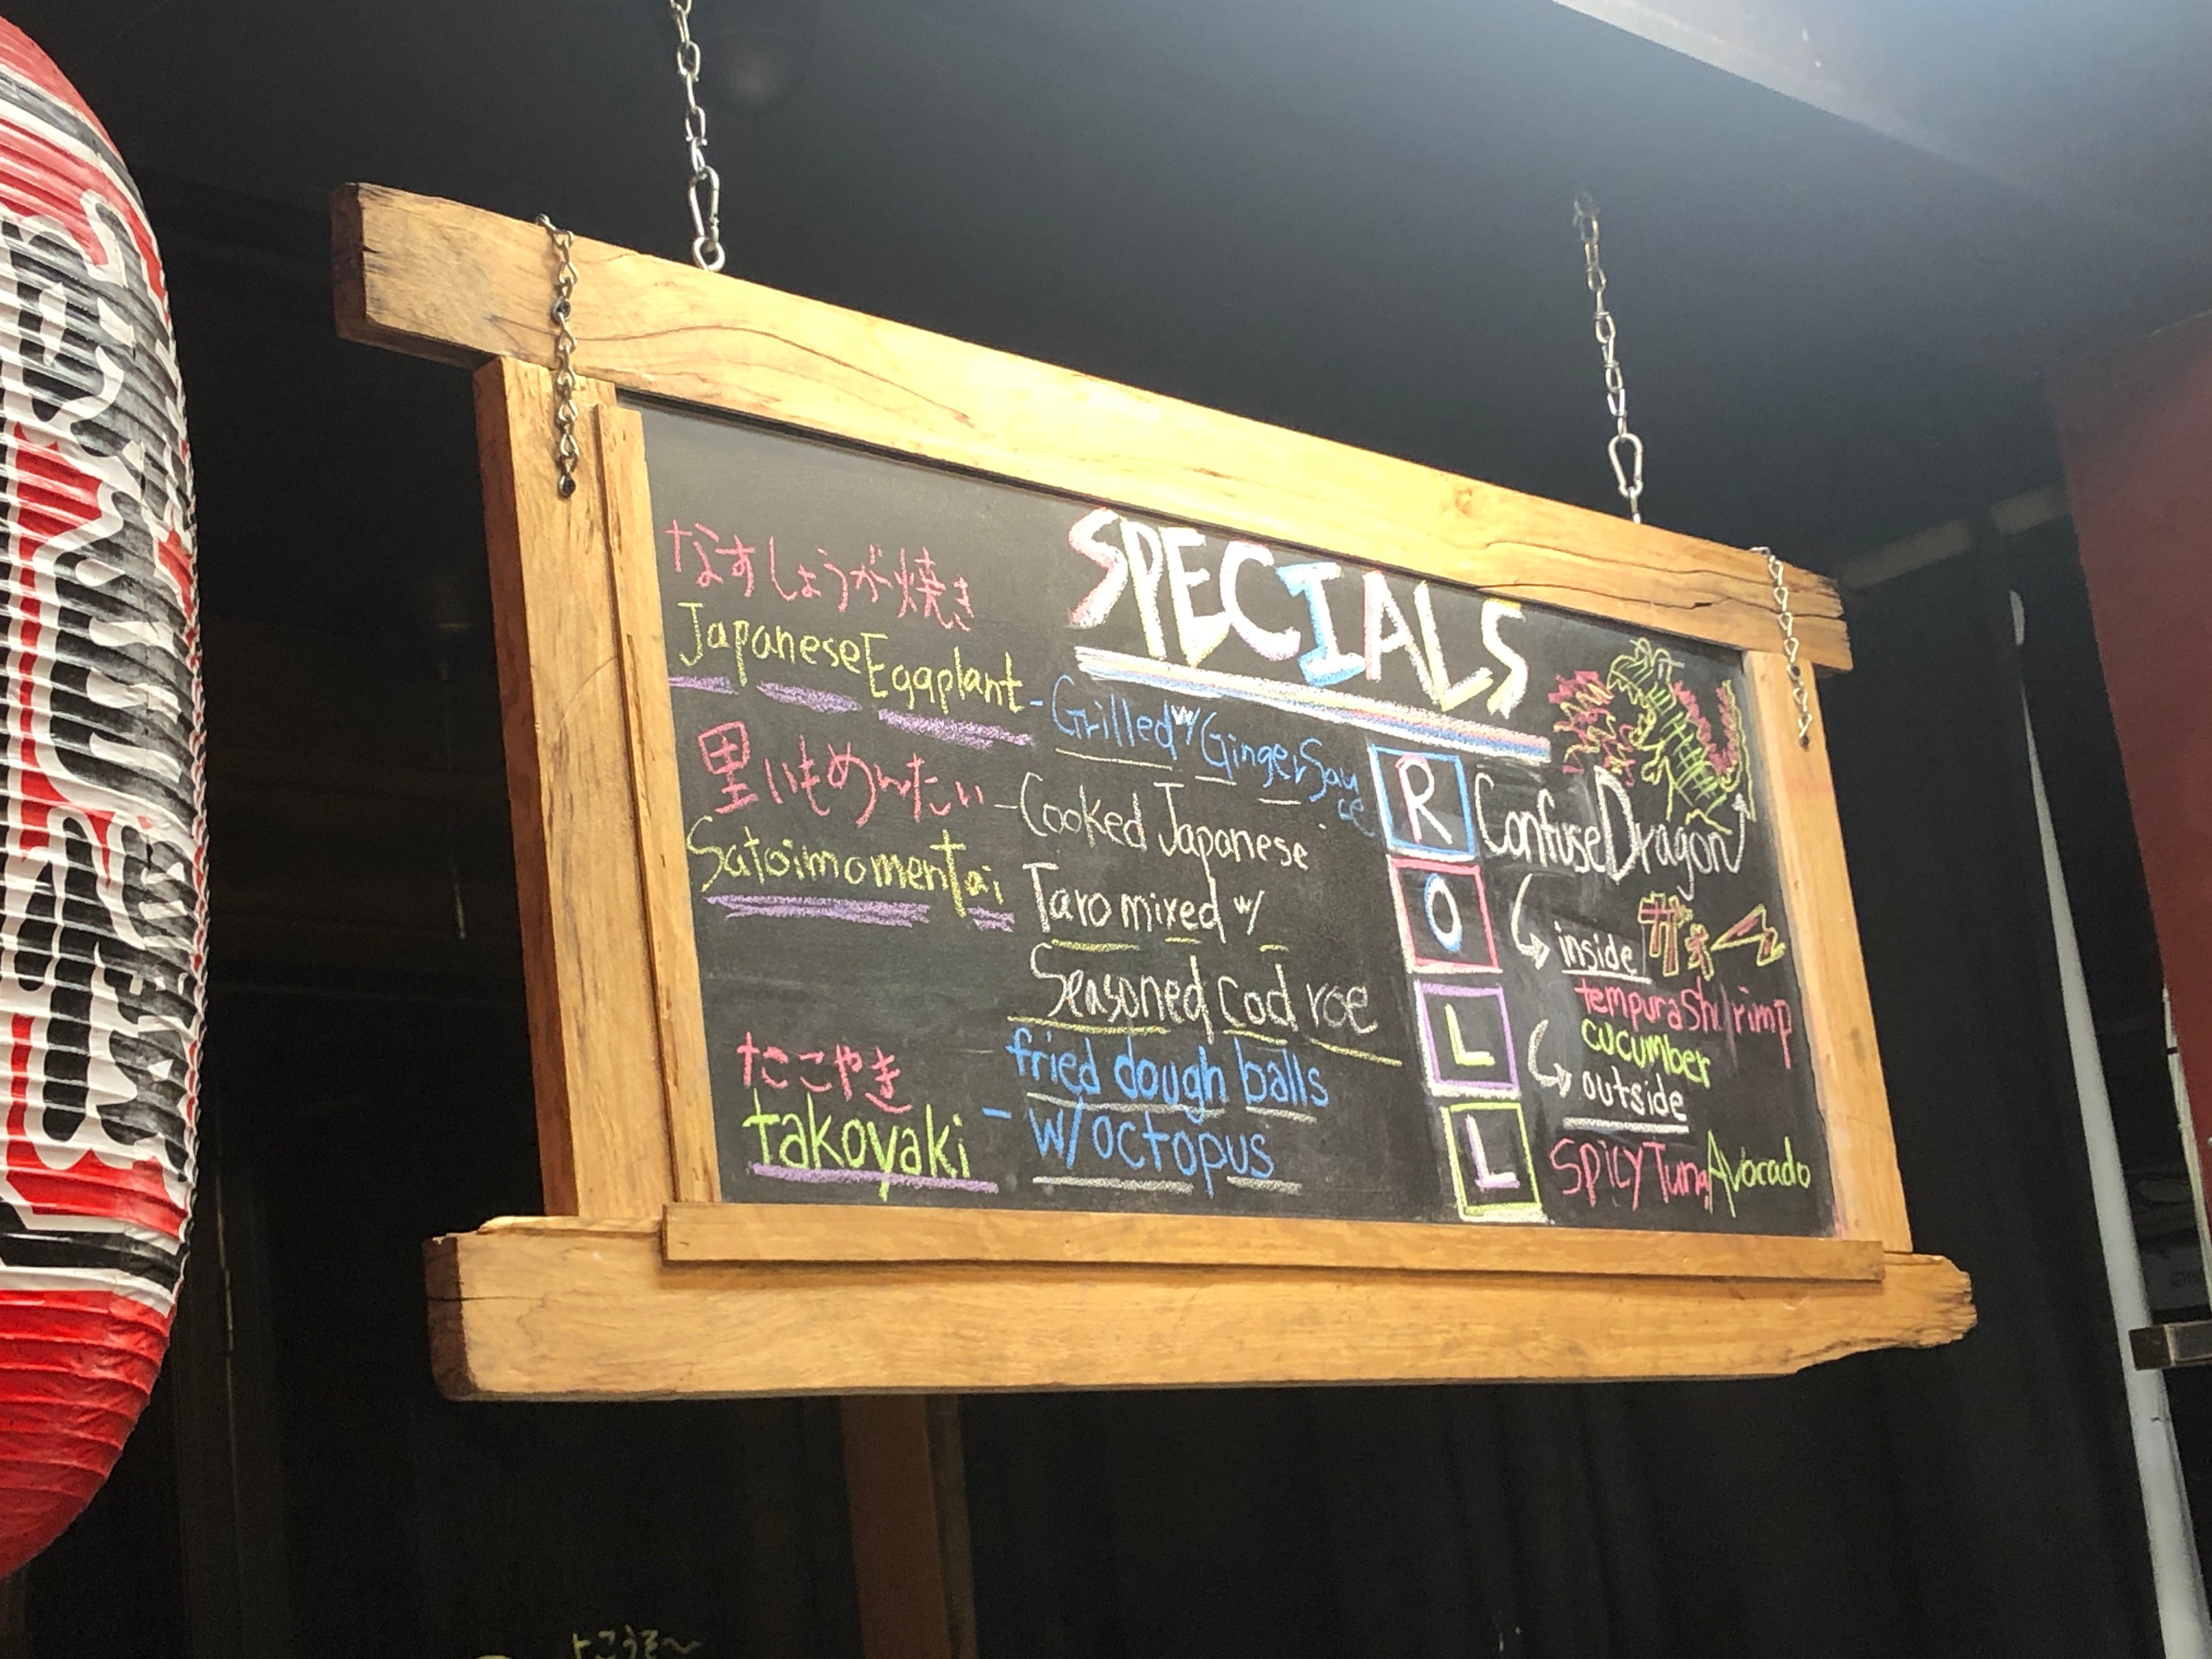 SPECIALS
なすしょうが焼き
Japanese Eggplant - Grilled w/ Ginger Sauce
里いもめんたい
Satoimomentai
- Cooked Japanese
Taro mixed w/
Seasoned cod roe
たこやき
takoyaki
- fried dough balls
w/ octopus
ROLL
Confuse Dragon
ガオー
inside
tempura Shrimp
cucumber
outside
Spicy Tuna Avocado
よこうそ〜